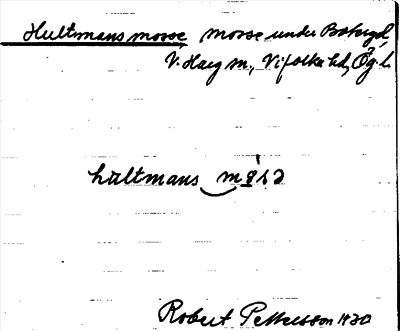 Hultmansmosse, mosse under Bokryd,
V. Harg sn, Vifolka hd, Ög. l.
hultmans
Robert Pettersson 1930